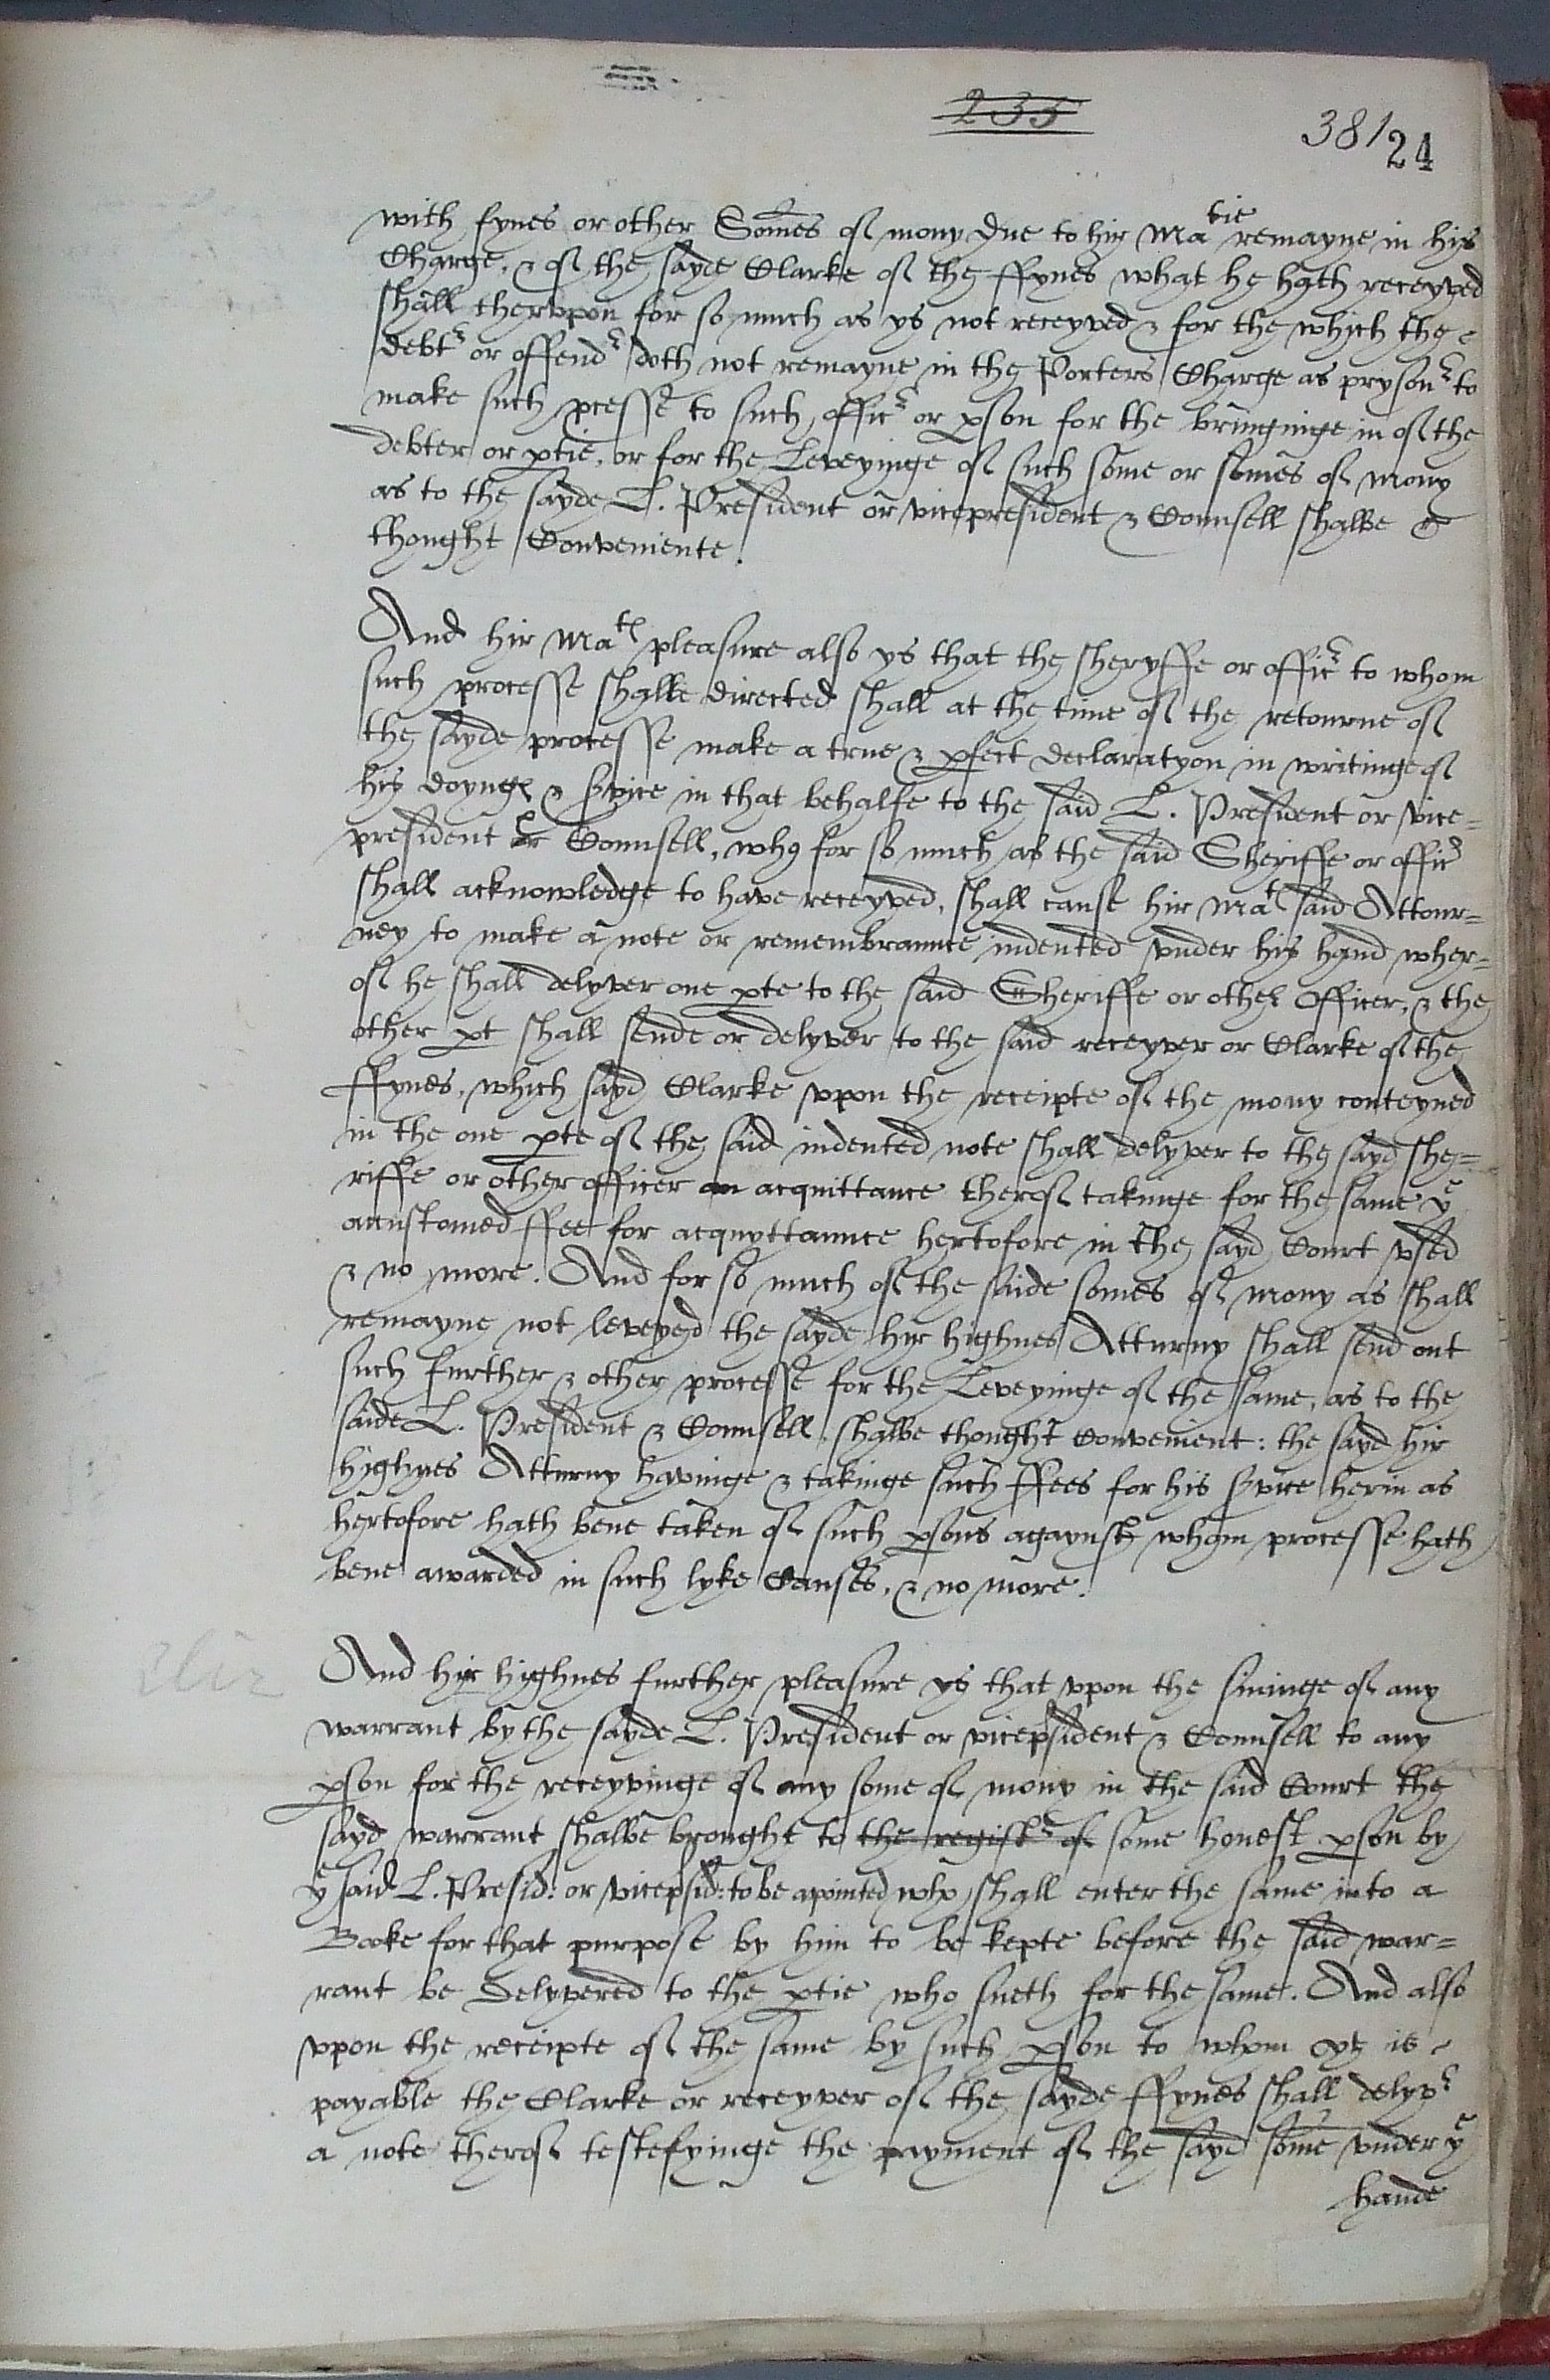 235
381
24
with fynes or other Somes of mony due to hir Ma^tie remayne in his
Charge, & of the sayde Clarke of the ffynes what he hath receyved
shall thervpon for so much as ys not receyved & for the which the
debt^r or offend^r doth not remayne in the Porters Charge as pryson^r to
make such pcesse to such offic^r or pson for the bringinge in of the
debter or ptie, or for the Leveyinge of such some or somes of mony
as to the sayde L. President or vicepresident & Counsell shalbe
thought Conveniente.
And hir Ma^ts pleasure also ys that the sheryffe or offic^r to whom
such processe shalbe directed shall at the time of the retourne of
the sayde processe make a true & pfect declaratyon in writinge of
his doynges & svice in that behalfe to the said L. President or vice=
president & Counsell, who for so much as the said Sheriffe or offic^r
shall acknowledge to have receyved, shall cause hir Ma^ts said Attour=
ney to make a note or remembraunce indented vnder his hand wher=
of he shall delyver one pte to the said Sheriffe or other Officer, & the
other pt shall sende or delyver to the said receyver or Clarke of the
ffynes, which sayd Clarke vpon the receipte of the mony conteyned
in the one pte of the said indented note shall delyver to the sayd she=
riffe or other officer an acquittance therof takinge for the same y^e
accustomed ffee for acquyttaunce hertofore in the sayd Court vsed
& no more. And for so much of the saide somes of mony as shall
remayne not leveyed the sayde hir highnes Atturny shall send out
such further & other processe for the Leveyinge of the same, as to the
saide L. President & Counsell shalbe thought Convenient: the sayd hir
highnes Atturny havinge & takinge such ffees for his svice herin as
hertofore hath bene taken of such psons agaynst whom processe hath
bene awarded in such lyke Causes, & no more.
And hir highnes further pleasure ys that vpon the sininge of any
warrant by the sayde L. President or vicepsident & Counsell to any
pson for the receyvinge of any some of mony in the said Court the
sayd warrant shalbe brought to the regist^r of some honest pson by
y^e said L. Presid: or vicepsid: to be apointed who shall enter the same into a
Booke for that purpose by him to be kepte before the said war=
rant be delyvered to the ptie who sueth for the same. And also
vpon the receipte of the same by such pson to whom yt is
payable the Clarke or receyver of the sayde ffynes shall delyv^r
a note therof testefyinge the payment of the sayd some vnder y^e
hande